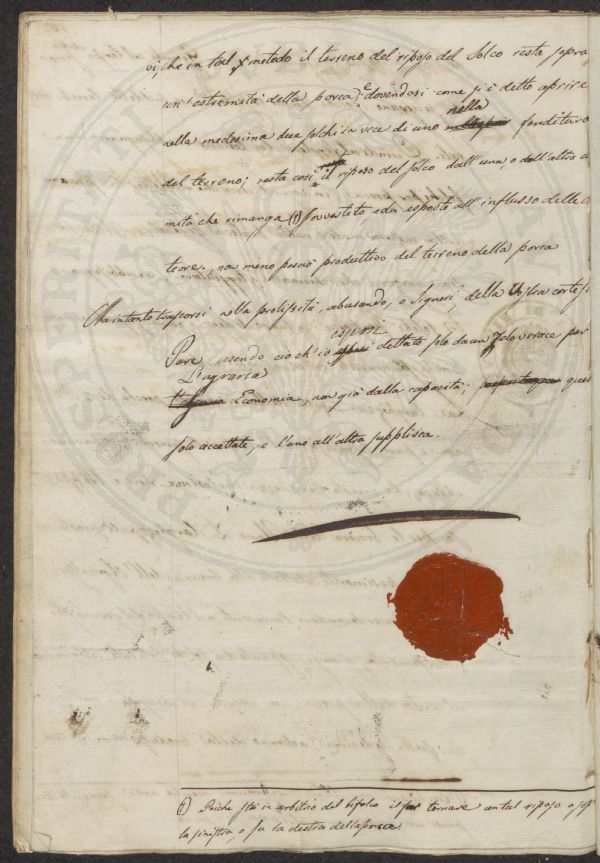 che in tal metodo il terreno del riposo del Solco resta sopra
un' estremità della porca; e dovendosi come si è detto aprire
nella medesima due solchi in vece di uno nella fenditura
del terreno; resta così il riposo del solco dall' una, o dall' altra
mità che rimanga, (1) sovvestito ed esposto all' influsso delle
teore, non meno perciò produttivo del terreno della porca
Ma intanto trascorsi nella prolissità, abusando, o Signori, della Vostra cortesi
Pure essendo ciò ch' io esposi dettato solo da un zelo verace per
L'agraria
Economia, non già dalla capacità; ques
solo accettate, e l'uno all' altra supplisca.
(1) Poiche sta in arbitrio del bifolco il far tornare un tal riposo o sop
la sinistra, o su la destra della porca